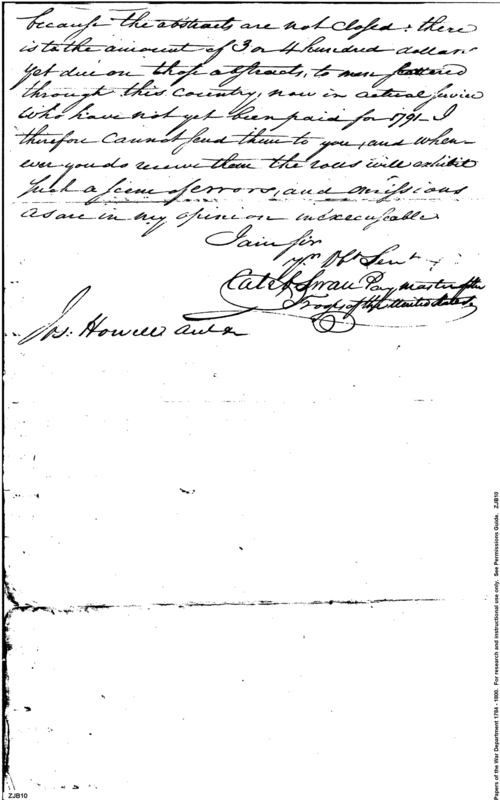 because the abstracts are not closed: there
is to the amount of 3 or 4 hundred dollars
yet due on those abstracts, to men scattered
through this country, now in actual service
who have not yet been paid for 1791_ I
therefore cannot send them to you, and when-
ever you do receive them the rolls will exhibit
such a scene of errors, and omissions
as are in my opinion inexcusable
I am sir
yr. Obt. Servt.
Caleb Swan Paymaster of the
Troops of the United States
Jos: Howell
Papers of the War Department 1784 - 1800. For research and instructional use only. See Permissions Guide. ZJB10
ZJB10